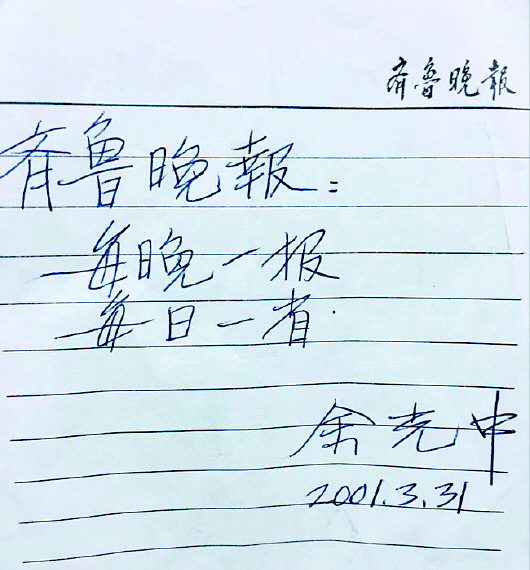 齐鲁晚報
齐鲁晚報：
每晚一报
每日一省.
余光中
2001.3.31